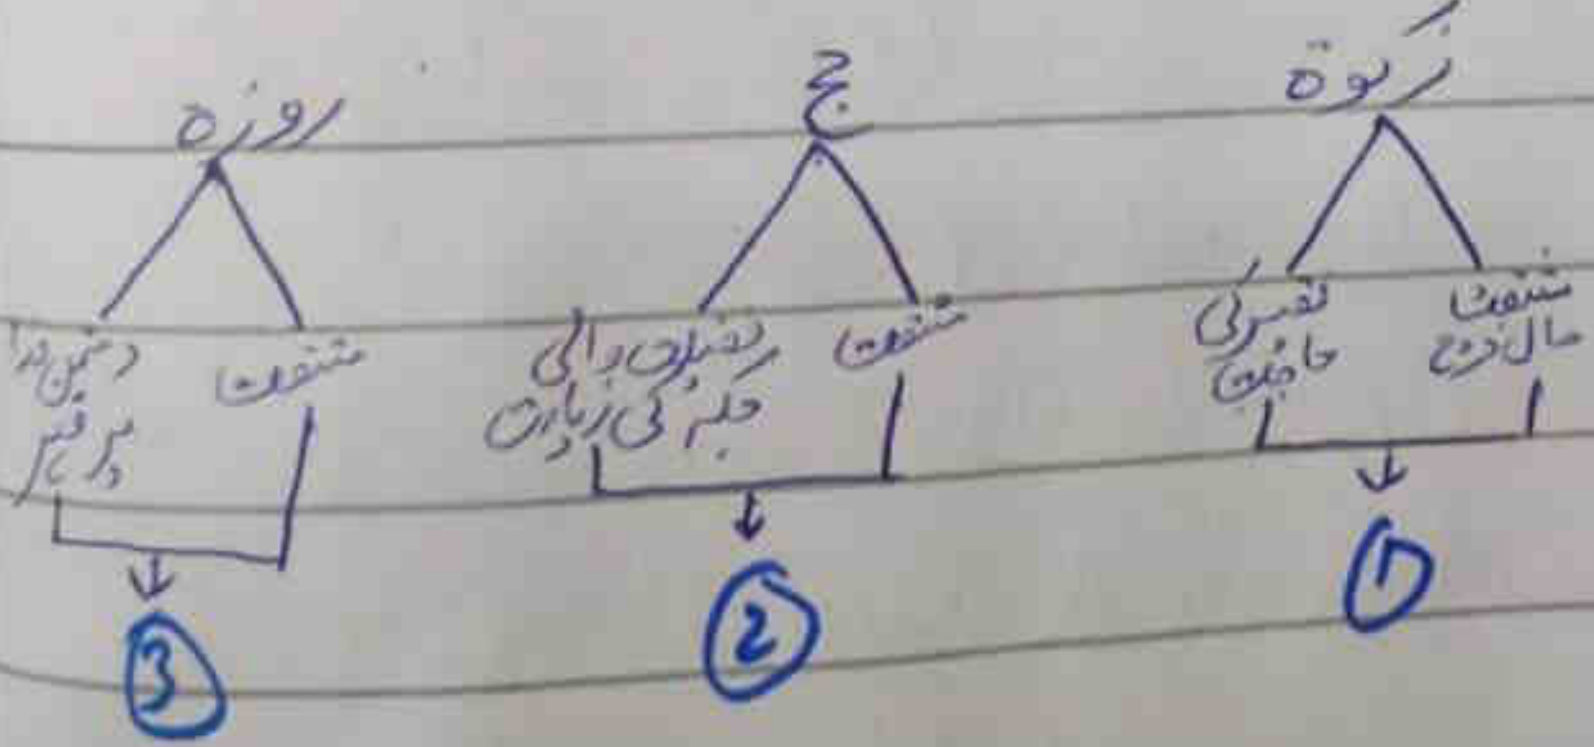 زکوٰة
مشقت
مال خرچ
فقیر کی
حاجت
1
حج
مشقت
فضیلت والی
جگہ کی زیارت
2
روزہ
مشقت
دشمن خدا
پر قہر
3